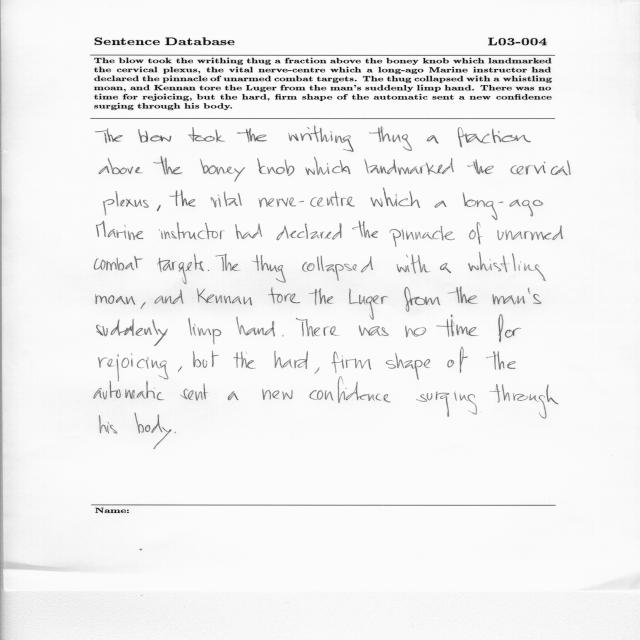 Sentence Database L03-004
The blow took the writhing thug a fraction above the boney knob which landmarked
the cervical plexus, the vital nerve-centre which a long-ago Marine instructor had
declared the pinnacle of unarmed combat targets. The thug collapsed with a whistling
moan, and Kennan tore the Luger from the man's suddenly limp hand. There was no
time for rejoicing, but the hard, firm shape of the automatic sent a new confidence
surging through his body.
The blow took the writhing thug a fraction
above the boney knob which landmarked the cervical
plexus, the vital nerve-centre which a long-ago
Marine instructor had declared the pinnacle of unarmed
combat targets. The thug collapsed with a whistling
moan, and Kennan tore the Luger from the man's
suddenly limp hand. There was no time for
rejoicing, but the hard, firm shape of the
automatic sent a new confidence surging through
his body.
Name: